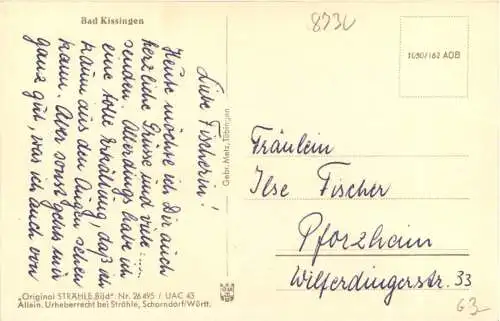 Bad Kissingen
Liebe Fischerin!
Heute möchte ich Dir auch
herzliche Grüsse und viele ....
senden. Allerdings habe ich
eine tolle Erkältung, daß ich
kaum aus den Augen sehen
kann. Aber sonst geht's mir
ganz gut, was ich auch von
Gebr. Metz, Tübingen
8730
1080/162 AOB
Fräulein
Ilse Fischer
Pforzheim
Wilferdingerstr. 33
63
„Original STRÄHLE Bild" Nr. 26495 / UAC 43
Allein. Urheberrecht bei Strähle, Schorndorf/Württ.